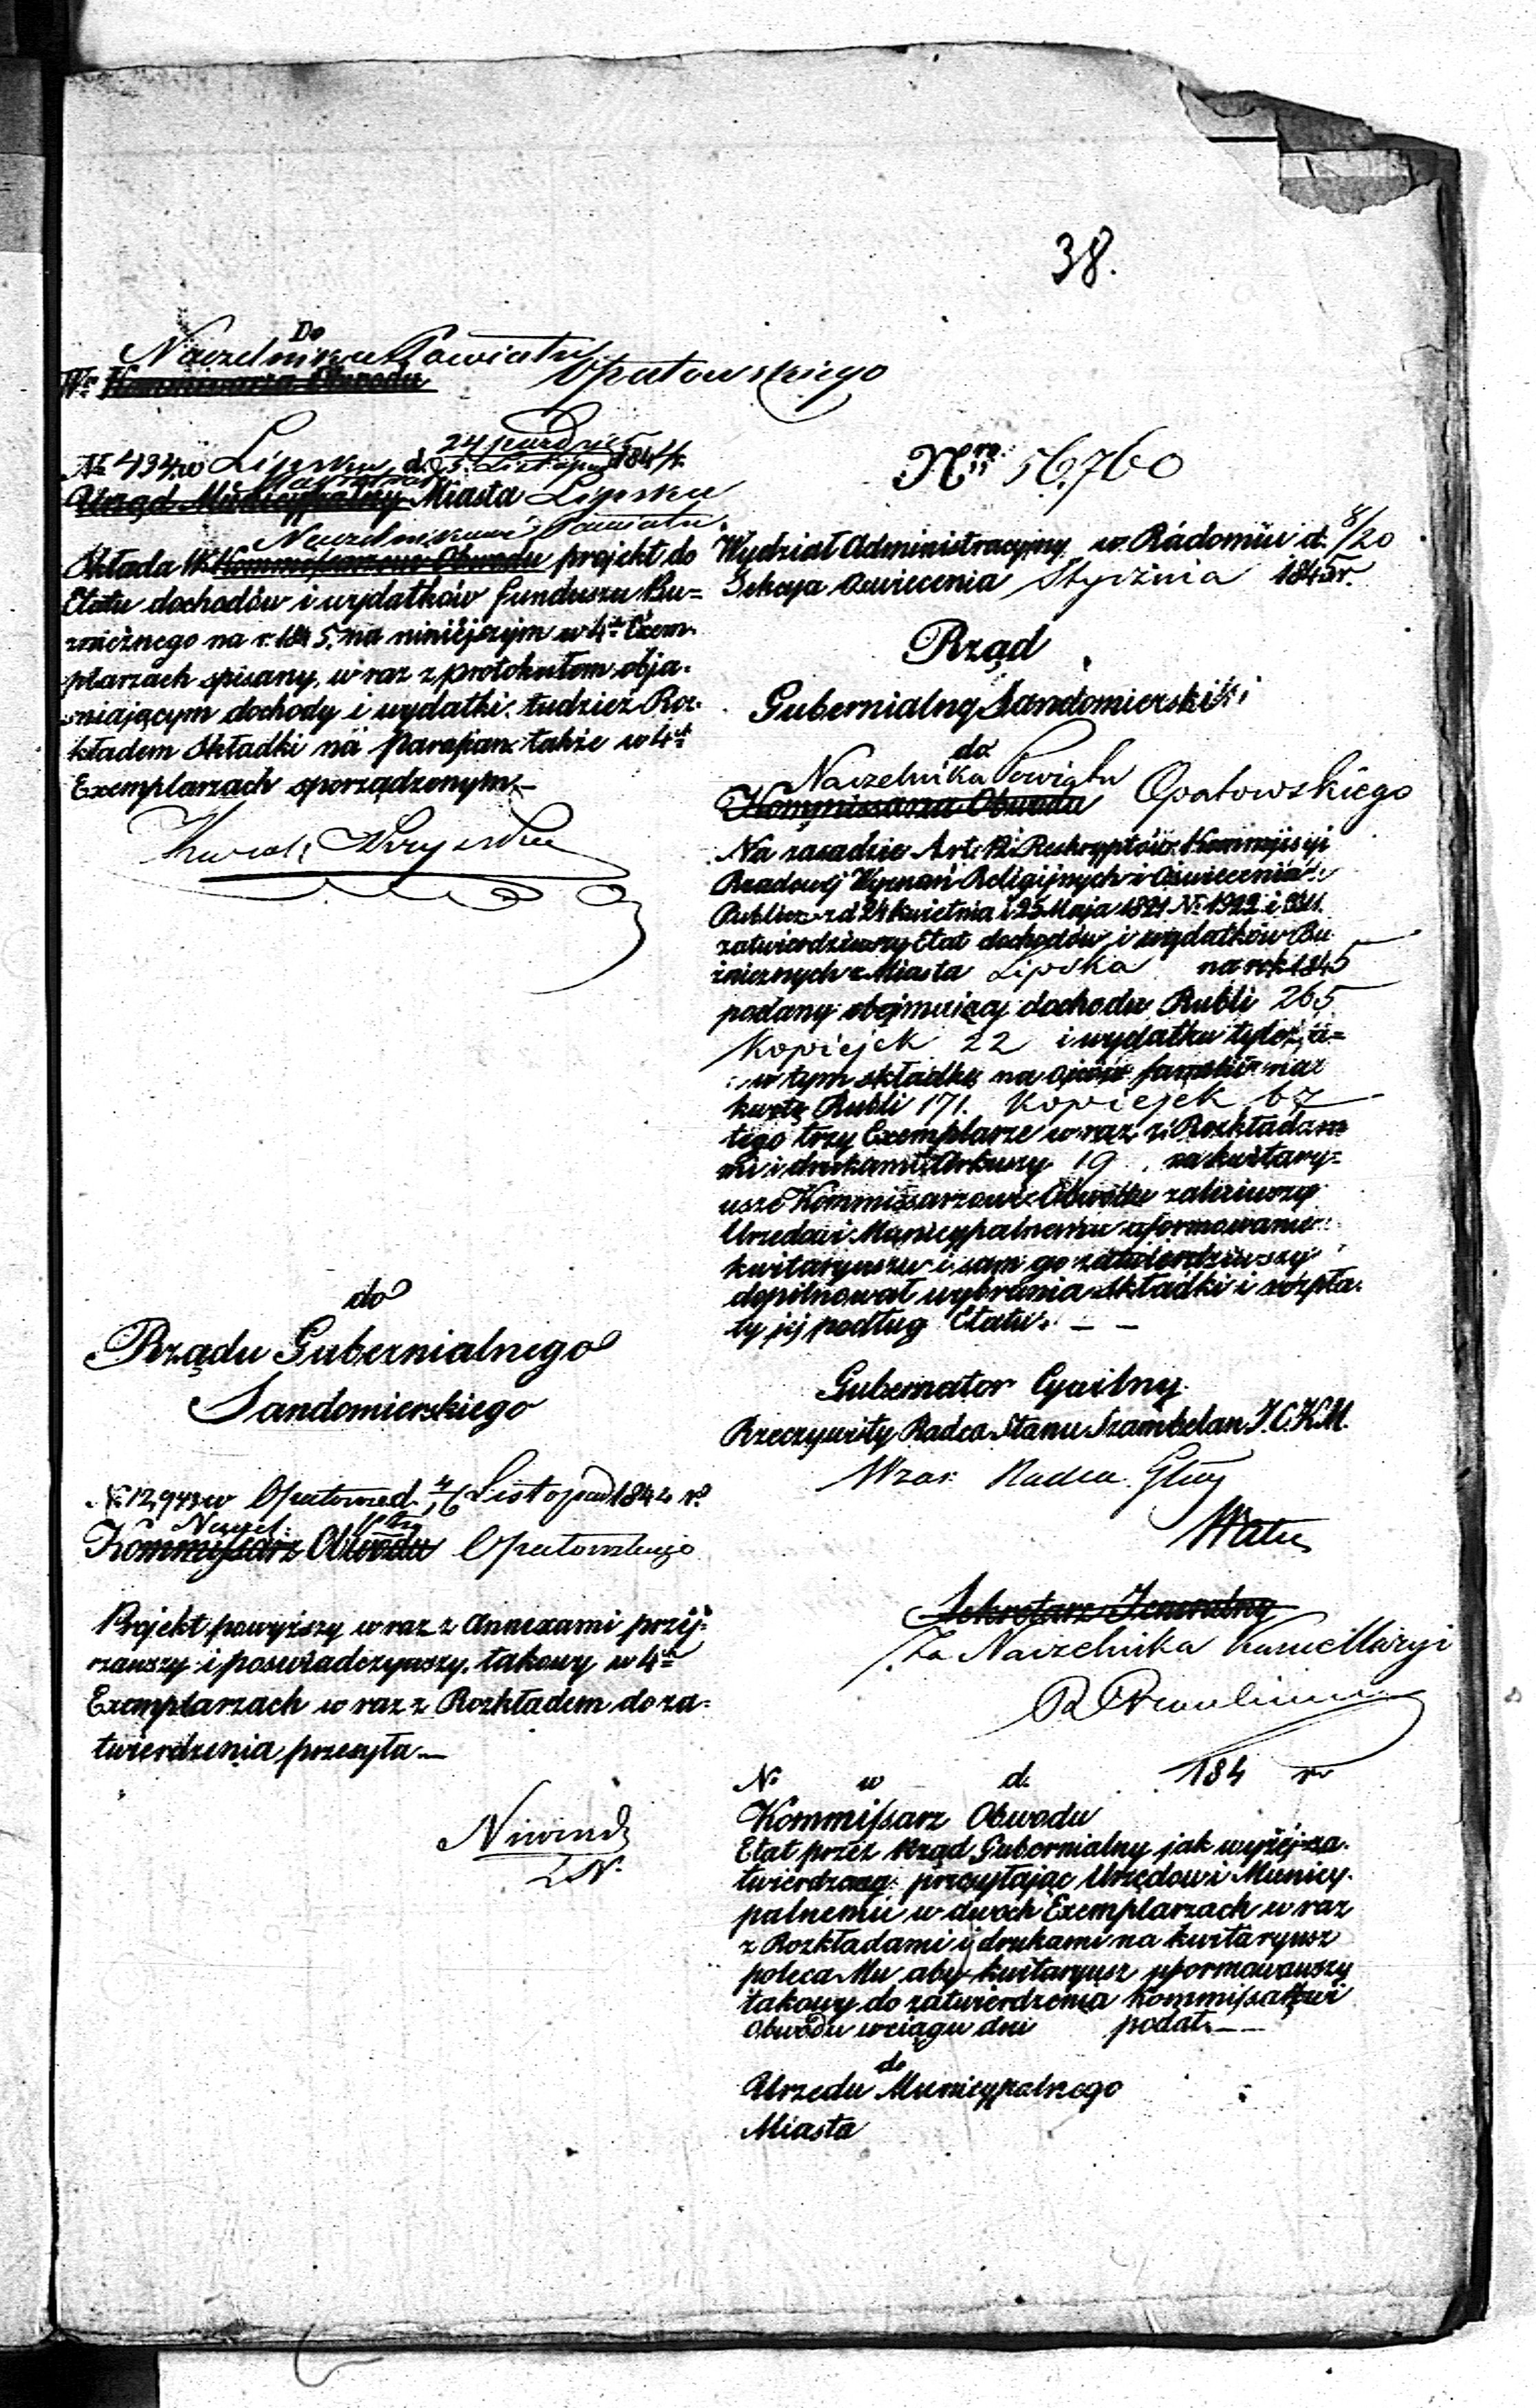 38.
Do
Naczelnika Powiatu
Wo Kommissarza Obwodu Opatowskiego
24 paździer
№ 494 w Lipsku d. 5. Listopad 1844 r.
Magistrat
Urząd Municypalny Miasta Lipska
Naczelnikowi Powiatu
Składa W. Kommissarzowi Obwodu projekt do
Etatu dochodów i wydatków funduszu Bu=
żnicznego na r. 1845. na niniéjszym w 4ch Exem-
plarzach spisany, wraz z protokułem obja-
śniającym dochody i wydatki, tudzież Roz-
kładem Składki na Parafian także w 4ch
Exemplarzach sporządzonym.—
do
Rządu Gubernialnego
Sandomierskiego
№ 12,943 w Opatowie d. 4/16 Listopad 1844 r.
Naczel: Ptu
Kommissarz Obwodu Opatowskiego
Projekt powyższy wraz z Annexami przej-
rzawszy i poświadczywszy, takowy w 4ch
Exemplarzach wraz z Rozkładem do za-
twierdzenia przesyła.—
Nro 56760
Wydział Administracyjny w Radomiu d. 8/20
Sekcya Oświecenia Stycznia 1845 r.
Rząd
Gubernialny Sandomierski
do
Naczelnika Powiatu
Kommissarza Obwodu Opatowskiego
Na zasadzie Art. Reskryptów Kommissyi
Rządowéj Wyznań Religijnych i Oświecenia
Publicz. z d. 24 Kwietnia i 25 Maja 1821 № 1922 i
zatwierdziwszy Etat dochodów i wydatków Bu
żnicznych Miasta Lipska na rok 1845
podany obejmujący dochodu Rubli 265
Kopiejek 22 i wydatku tyleż, a=
w tym składkę na familii na
kwotę Rubli 171. Kopiejek 67
tego trzy Exemplarze wraz z Rozkłada
mi i drukami Arkuszy 19 na kwitary=
usze Kommissarzowi Obwodu zaleciwszy
Urzędowi Municypalnemu uformowanie
kwitaryuszu i sam go zatwierdziwszy
dopilnował wybrania składki i wypła-
ty jéj podług Etatu. — —
Gubernator Cywilny
Rzeczywisty Radca Stanu Szambelan J.C.K.M.
Wzas: Radca
Sekretarz Jeneralny
Za Naczelnika Kancellaryi
№ w d. 184 r.
Kommissarz Obwodu
Etat przez Rząd Gubernialny jak wyżéj za-
twierdzony przesyłając Urzędowi Municy-
palnemu w dwóch Exemplarzach wraz
z Rozkładami i drukami na kwitaryusz
poleca Mu aby kwitaryusz uformowawszy
takowy do zatwierdzenia Kommissarzowi
Obwodu w ciągu dni podał.——
do
Urzędu Municypalnego
Miasta